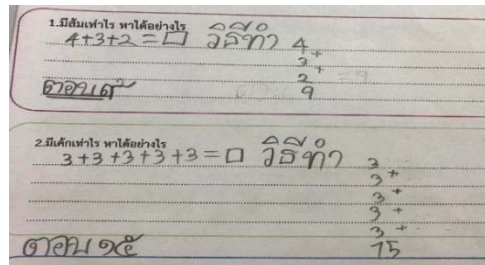 1.มีส้มเท่าไร หาได้อย่างไร
4+3+2=□ วิธีทำ 4
3 +
2 +
9
ตอบ ๙
2.มีเค้กเท่าไร หาได้อย่างไร
3+3+3+3+3=□ วิธีทำ 3
3 +
3 +
3 +
3 +
ตอบ ๑๕ 15